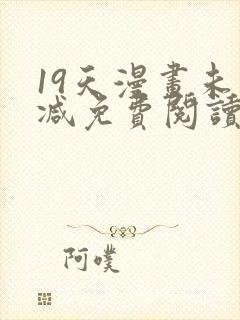 19天漫畫未
減免費閱讀
阿噗